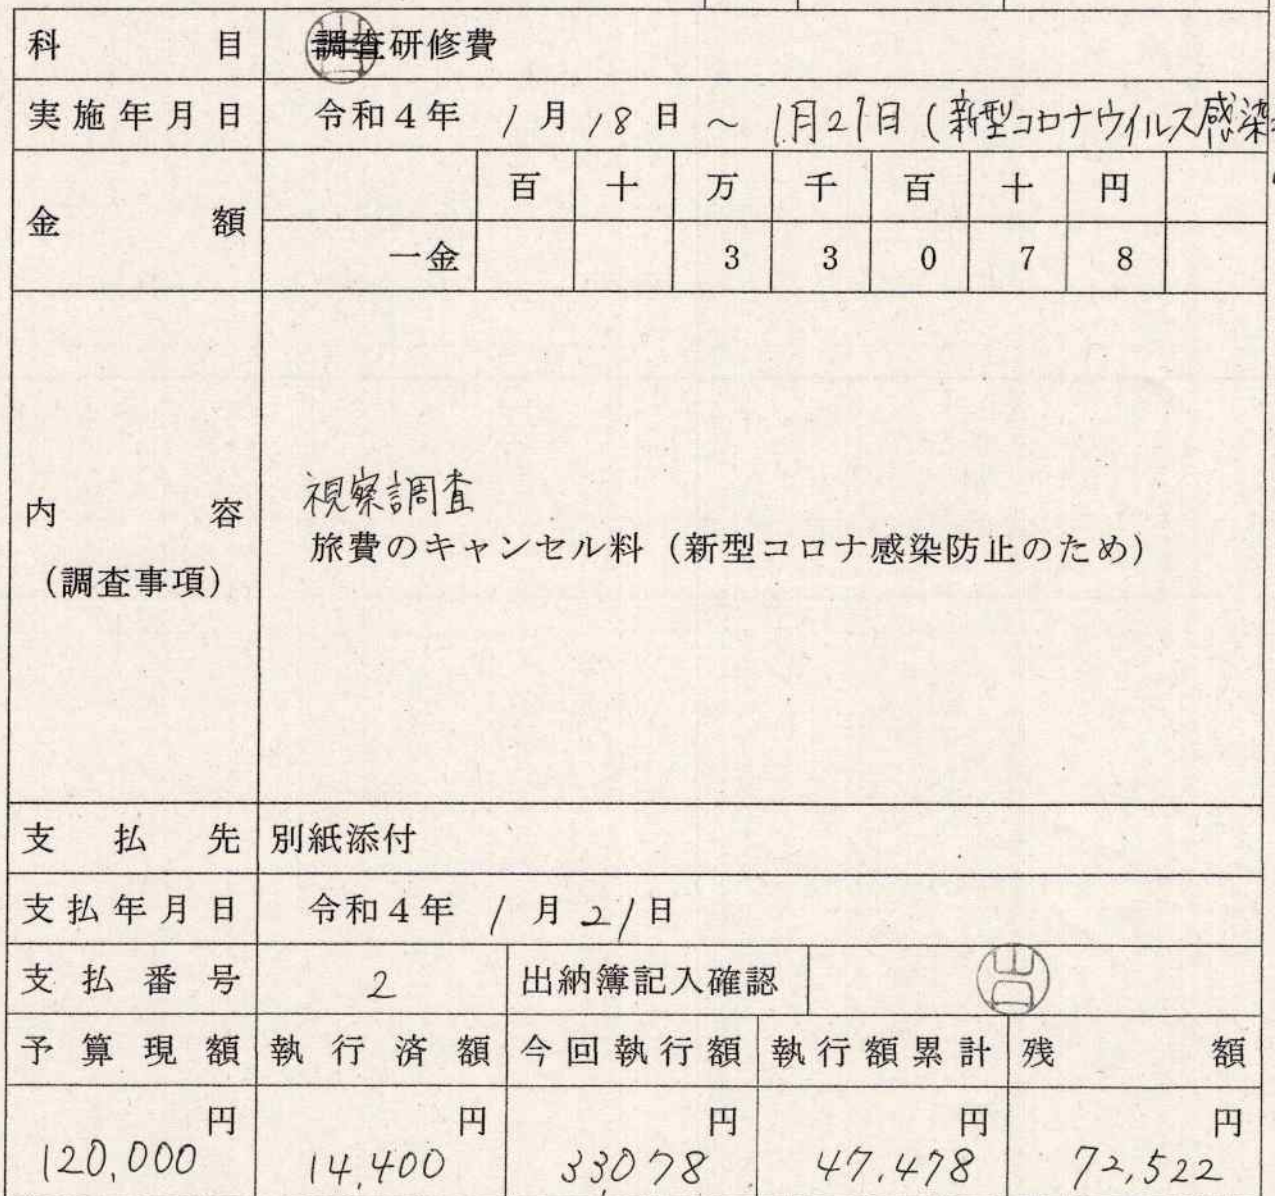 科目 調査研修費
実施年月日 令和4年 1月18日 ~ 1月21日(新型コロナウイルス感染
百 十 万 千 百 十 円
金額 一金 3 3 0 7 8
視察調査
内容 旅費のキャンセル料(新型コロナ感染防止のため)
(調査事項)
支払先 別紙添付
支払年月日 令和4年 1月21日
支払番号 2 出納簿記入確認
予算現額 執行済額 今回執行額 執行額累計 残額
円 円 円 円 円
120,000 14,400 33078 47,478 72,522